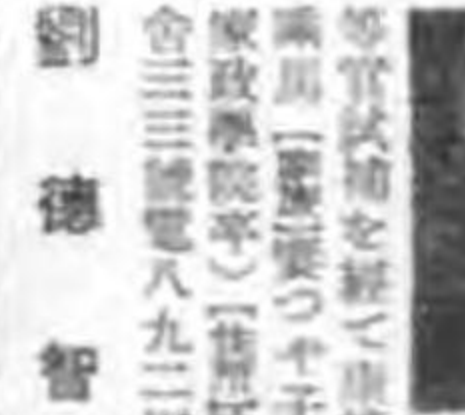 等官試補を經て
【家族】妻つや子
家政學院卒）【住所】
舍三三號電八九二
劉德智